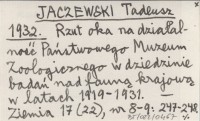 JACZEWSKI Tadeusz
1932. Rzut oka na działal-
ność Państwowego Muzeum
Zoologicznego w dziedzinie
badań nad fauną krajową
w latach 1919-1931. —
Ziemia 17 (22), nr 8-9: 247-248.